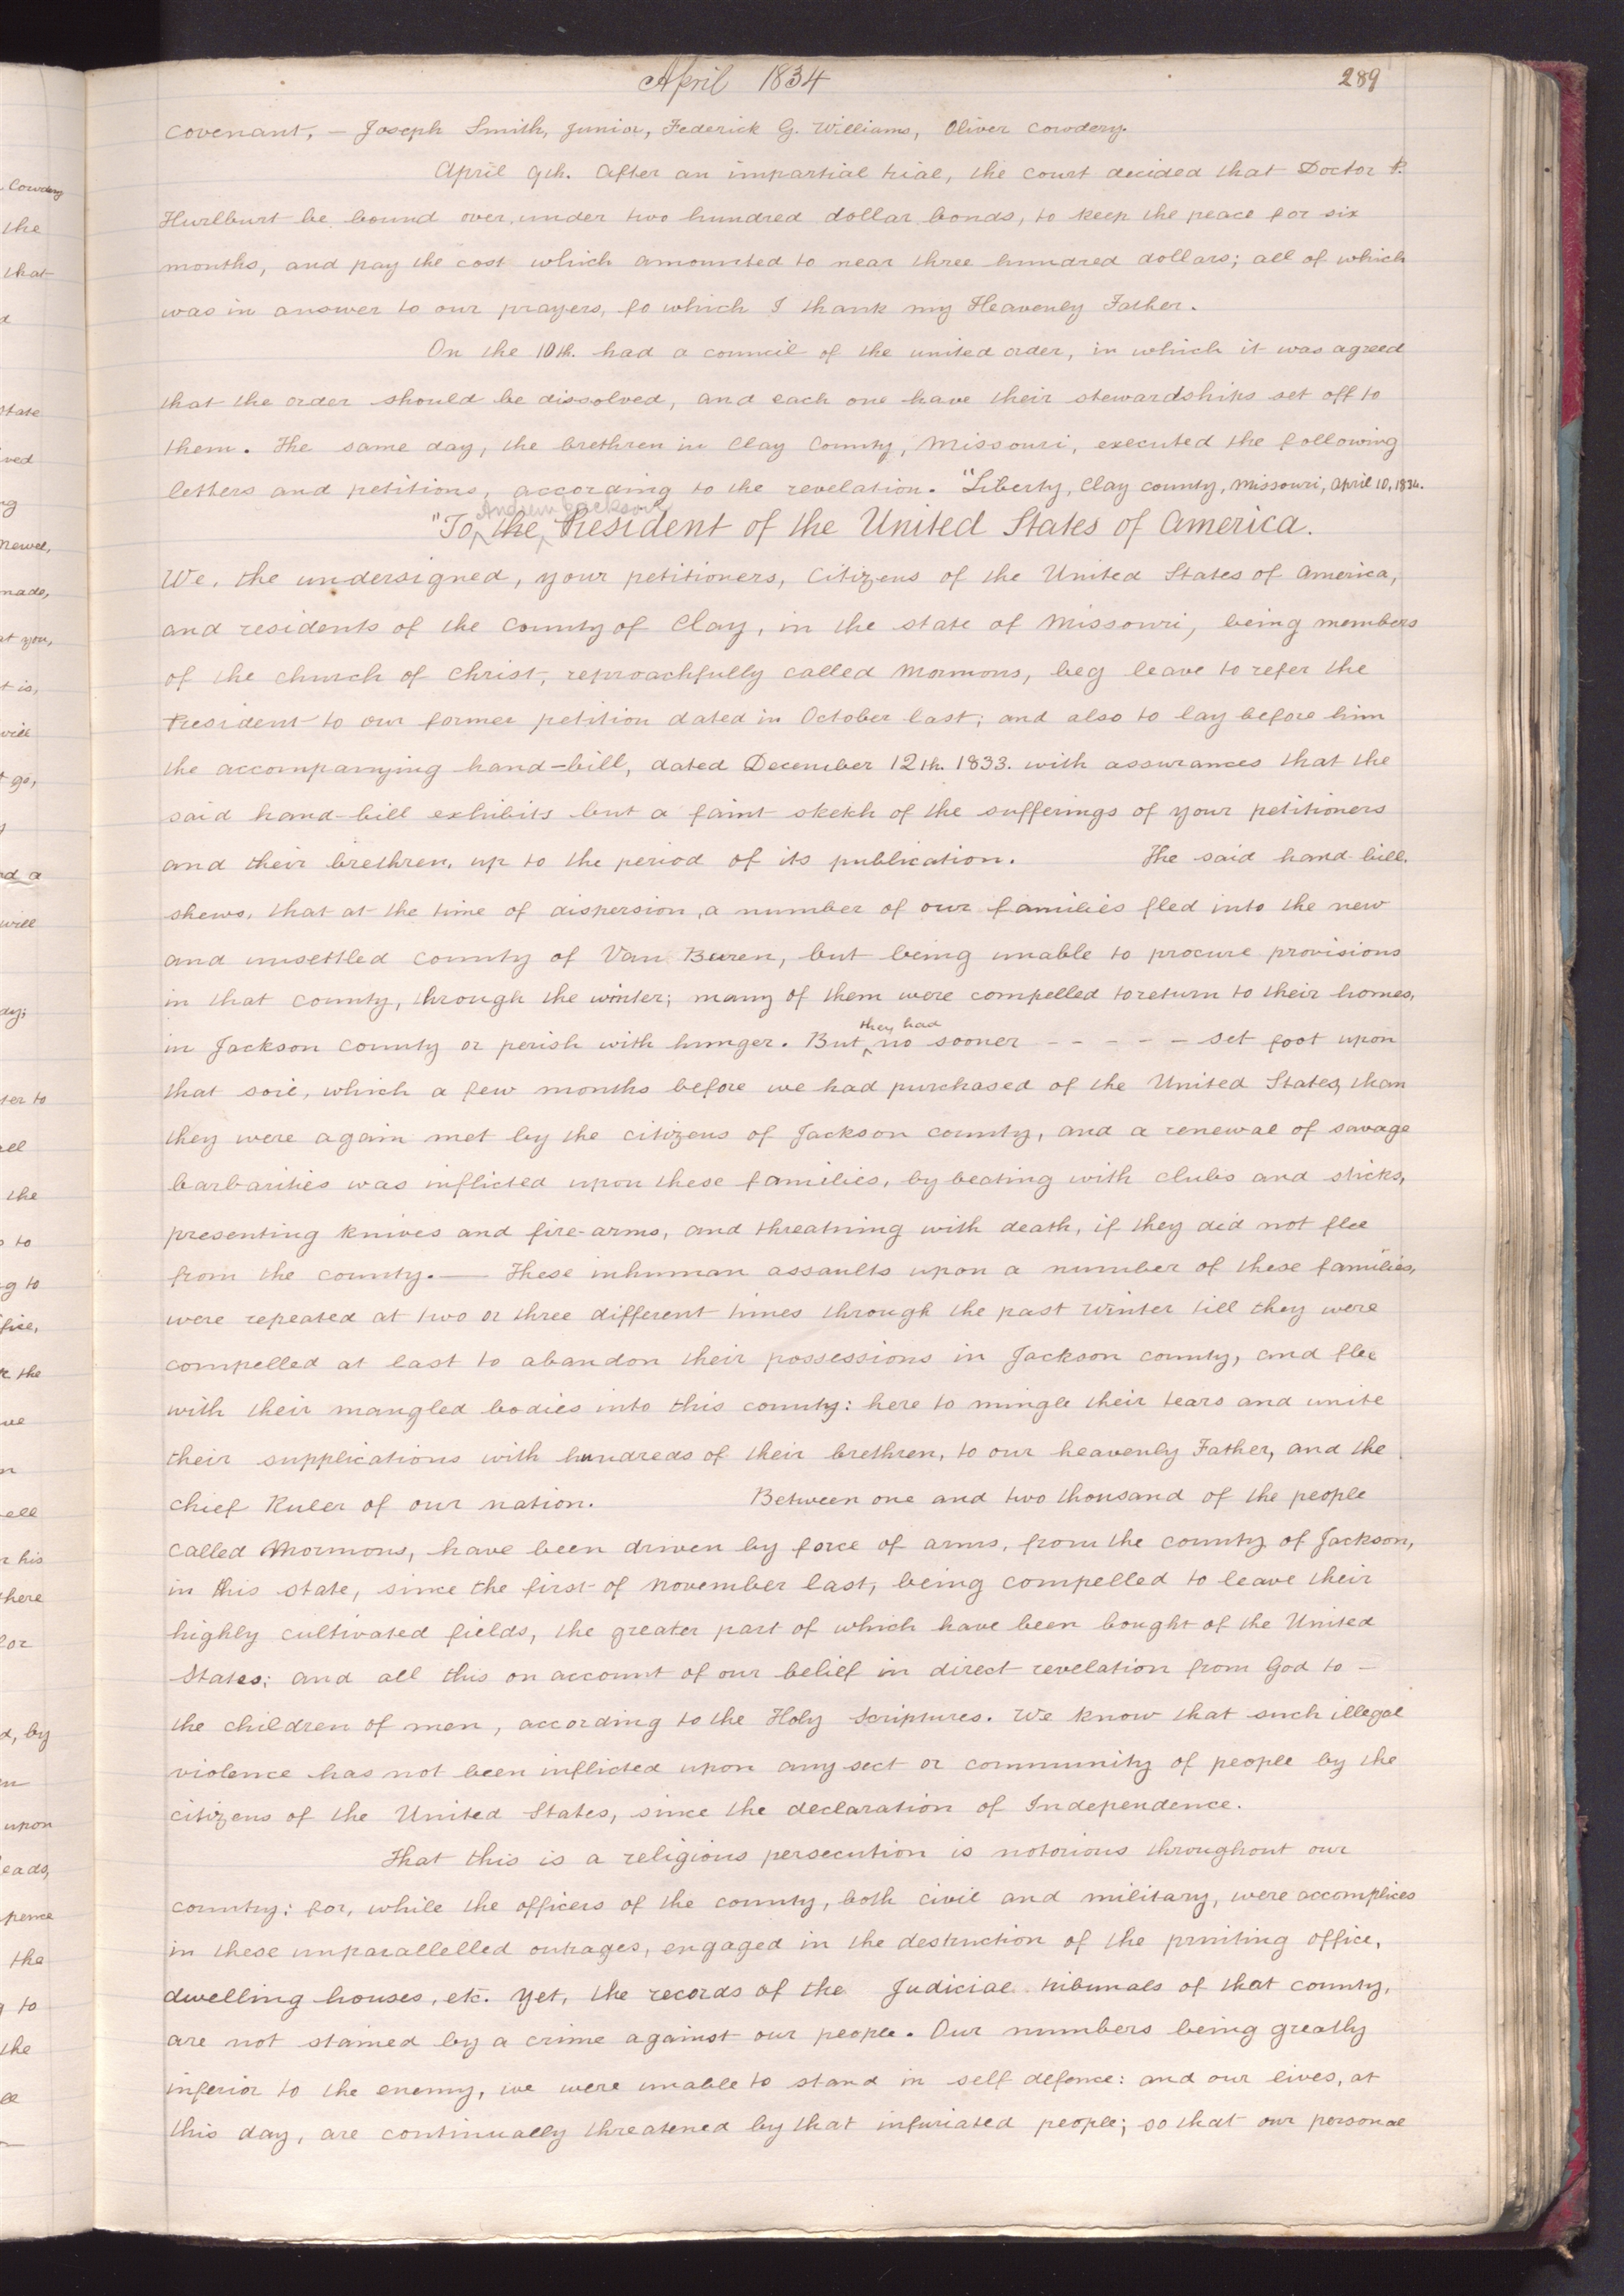 April 1834
289
covenant, — Joseph Smith, junior, Federick G. Williams, Oliver Cowdery.
April 9th. After an impartial trial, the court decided that Doctor P.
Hurlburt be bound over, under two hundred dollar bonds, to keep the peace for six
months, and pay the cost which amounted to near three hundred dollars; all of which
was in answer to our prayers, fo which I thank my Heavenly Father.
On the 10th. had a council of the united order, in which it was agreed
that the order should be dissolved, and each one have their stewardships set off to
them. The same day, the brethren in Clay County, Missouri, executed the following
letters and petitions, according to the revelation. "Liberty, Clay county, Missouri, April 10, 1834.
Andrew Jackson
"To, the, President of the United States of America.
We, the undersigned, your petitioners, Citizens of the United States of America,
and residents of the County of Clay, in the state of Missouri, being members
of the church of Christ, reproachfully called Mormons, beg leave to refer the
President to our former petition dated in October last; and also to lay before him
the accompanying hand-bill, dated December 12th. 1833. with assurances that the
said hand-bill exhibits but a faint sketch of the sufferings of your petitioners
and their brethren, up to the period of its publication. The said hand-bill.
shews, that at the time of dispersion, a number of our families fled into the new
and unsettled county of Van Buren, but being unable to procure provisions
in that county, through the winter; many of them were compelled to return to their homes,
they had
in Jackson county or perish with hunger. But ‸ no sooner - - - - - set foot upon
that soil, which a few months before we had purchased of the United States, than
they were again met by the citizens of Jackson county, and a renewal of savage
barbarities was inflicted upon these families, by beating with clubs and sticks,
presenting knives and fire-arms, and threatning with death, if they did not flee
from the county. — These inhuman assaults upon a number of these families,
were repeated at two or three different times through the past winter till they were
compelled at last to abandon their possessions in Jackson county, and flee
with their mangled bodies into this county: here to mingle their tears and unite
their supplications with hundreds of their brethren, to our heavenly Father, and the
chief Ruler of our nation. Between one and two thousand of the people
called Mormons, have been driven by force of arms, from the county of Jackson,
in this state, since the first of November last, being compelled to leave their
highly cultivated fields, the greater part of which have been bought of the United
States; and all this on account of our belief in direct revelation from God to —
the children of men, according to the Holy Scriptures. We know that such illegal
violence has not been inflicted upon any sect or community of people by the
citizens of the United States, since the declaration of Independence.
That this is a religious persecution is notorious throughout our
country; for, while the officers of the county, both civil and military, were accomplices
in these unparallelled outrages, engaged in the destruction of the printing office,
dwelling houses, etc. yet, the records of the Judicial tribunals of that county,
are not stained by a crime against our people. Our numbers being greatly
inferior to the enemy, we were unable to stand in self defence: and our lives, at
this day, are continually threatened by that infuriated people; so that our personal